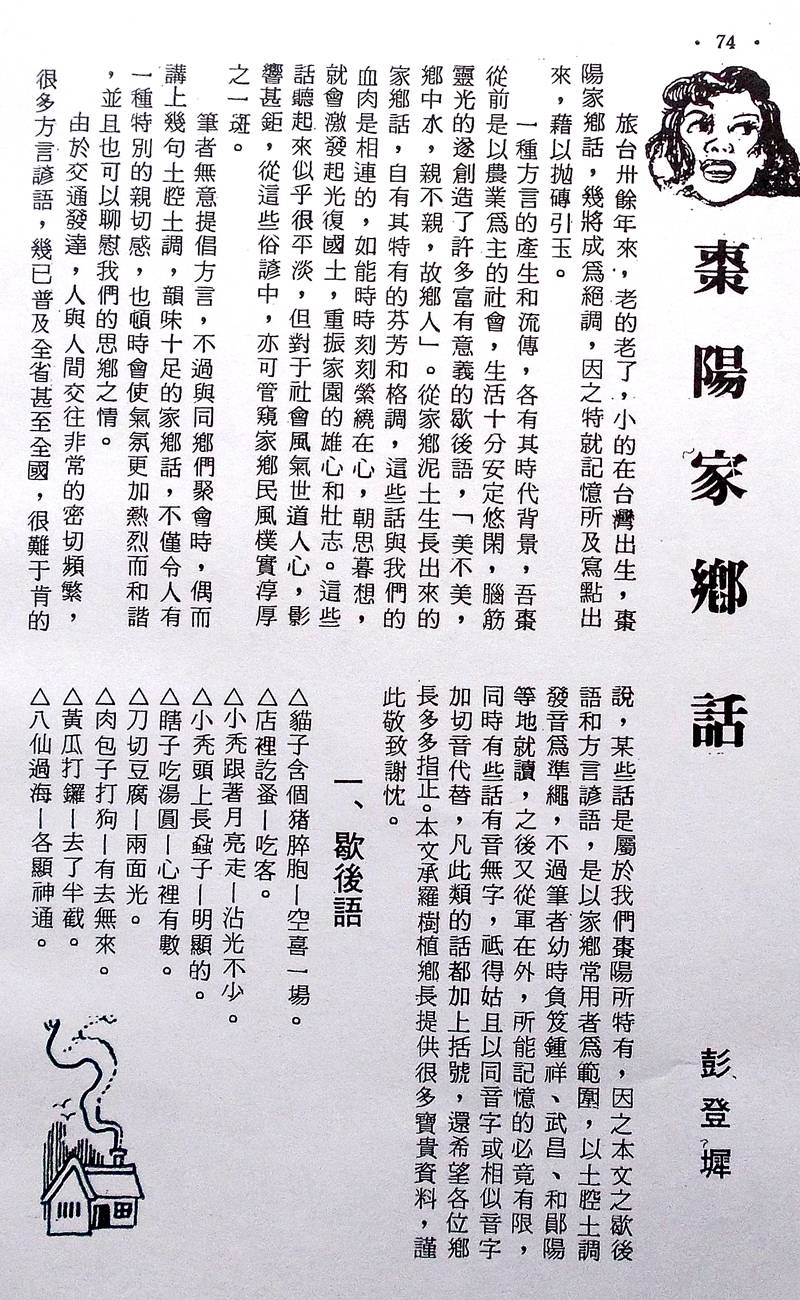 · 74 ·
棗陽家鄉話
彭登墀
旅台卅餘年來，老的老了，小的在台灣出生，棗
陽家鄉話，幾將成爲絕調，因之特就記憶所及寫點出
來，藉以拋磚引玉。
一種方言的產生和流傳，各有其時代背景，吾棗
從前是以農業爲主的社會，生活十分安定悠閑，腦筋
靈光的遂創造了許多富有意義的歇後語，「美不美，
鄉中水，親不親，故鄉人」。從家鄉泥土生長出來的
家鄉話，自有其特有的芬芳和格調，這些話與我們的
血肉是相連的，如能時時刻刻縈繞在心，朝思暮想，
就會激發起光復國土，重振家園的雄心和壯志。這些
話聽起來似乎很平淡，但對于社會風氣世道人心，影
響甚鉅，從這些俗諺中，亦可管窺家鄉民風樸實淳厚
之一斑。
筆者無意提倡方言，不過與同鄉們聚會時，偶而
講上幾句土腔土調，韻味十足的家鄉話，不僅令人有
一種特別的親切感，也頓時會使氣氛更加熱烈而和諧
，並且也可以聊慰我們的思鄉之情。
由於交通發達，人與人間交往非常的密切頻繁，
很多方言諺語，幾已普及全省甚至全國，很難于肯的
說，某些話是屬於我們棗陽所特有，因之本文之歇後
語和方言諺語，是以家鄉常用者爲範圍，以土腔土調
發音爲準繩，不過筆者幼時負笈鍾祥、武昌、和鄖陽
等地就讀，之後又從軍在外，所能記憶的必竟有限，
同時有些話有音無字，祇得姑且以同音字或相似音字
加切音代替，凡此類的話都加上括號，還希望各位鄉
長多多指正。本文承羅樹植鄉長提供很多寶貴資料，謹
此敬致謝忱。
一、歇後語
△貓子含個猪脬胞—空喜一場。
△店裡訖蚤—吃客。
△小禿跟著月亮走—沾光不少。
△小禿頭上長蝨子—明顯的。
△瞎子吃湯圓—心裡有數。
△刀切豆腐—兩面光。
△肉包子打狗—有去無來。
△黃瓜打鑼—去了半截。
△八仙過海—各顯神通。